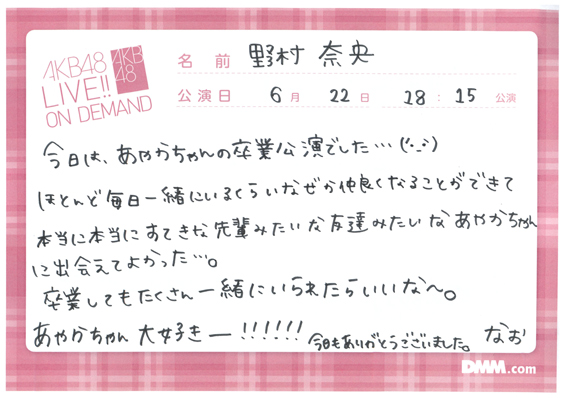 AKB48
LIVE!!
ON DEMAND
AKB
48
名前 野村 奈央
公演日 6月 22日 18:15 公演
今日は、あやかちゃんの卒業公演でした…(·_·)
ほとんど毎日一緒にいるくらいなぜか仲良くなることができて
本当に本当にすてきな先輩みたいな友達みたいなあやかちゃん
に出会えてよかった…。
卒業してもたくさん一緒にいられたらいいな〜。
あやかちゃん 大好きー!!!!!!
今日もありがとうございました。 なお
DMM.com